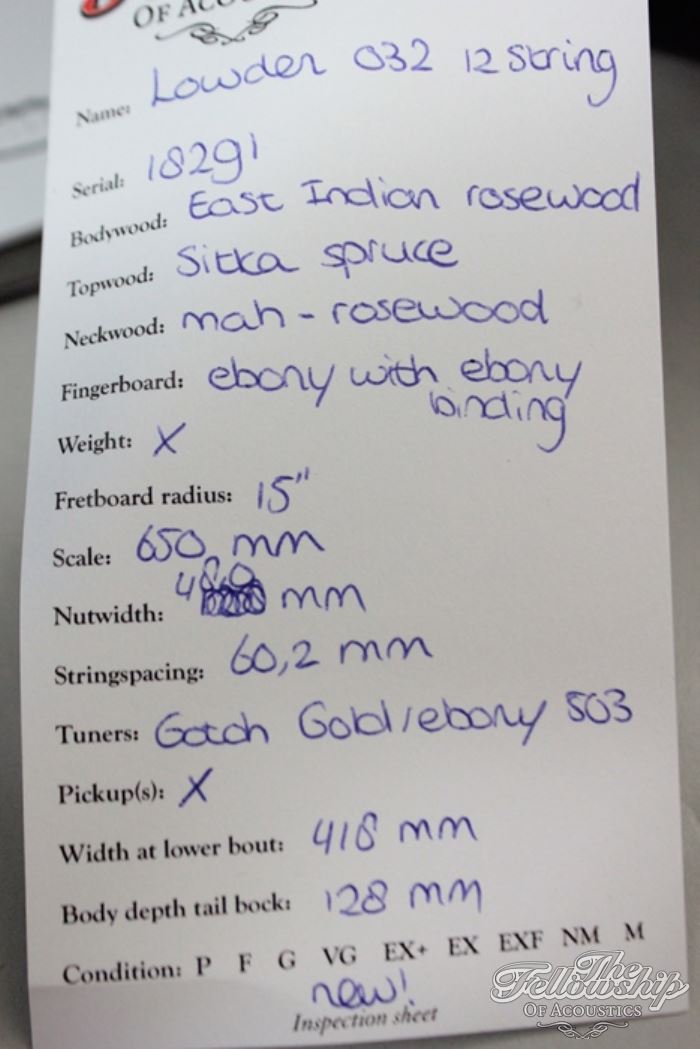 OF ACOUSTICS
Name: Lowden 032 12 string
Serial: 18291
Bodywood: East Indian rosewood
Topwood: Sitka spruce
Neckwood: mah - rosewood
Fingerboard: ebony with ebony
binding
Weight: X
Fretboard radius: 15"
Scale: 650 mm
Nutwidth: 48,0 mm
Stringspacing: 60,2 mm
Tuners: Gotoh Gold/ebony 503
Pickup(s): X
Width at lower bout: 418 mm
Body depth tail bock: 128 mm
Condition: P F G VG EX+ EX EXF NM M
new!
Inspection sheet
The
Fellowship
OF ACOUSTICS